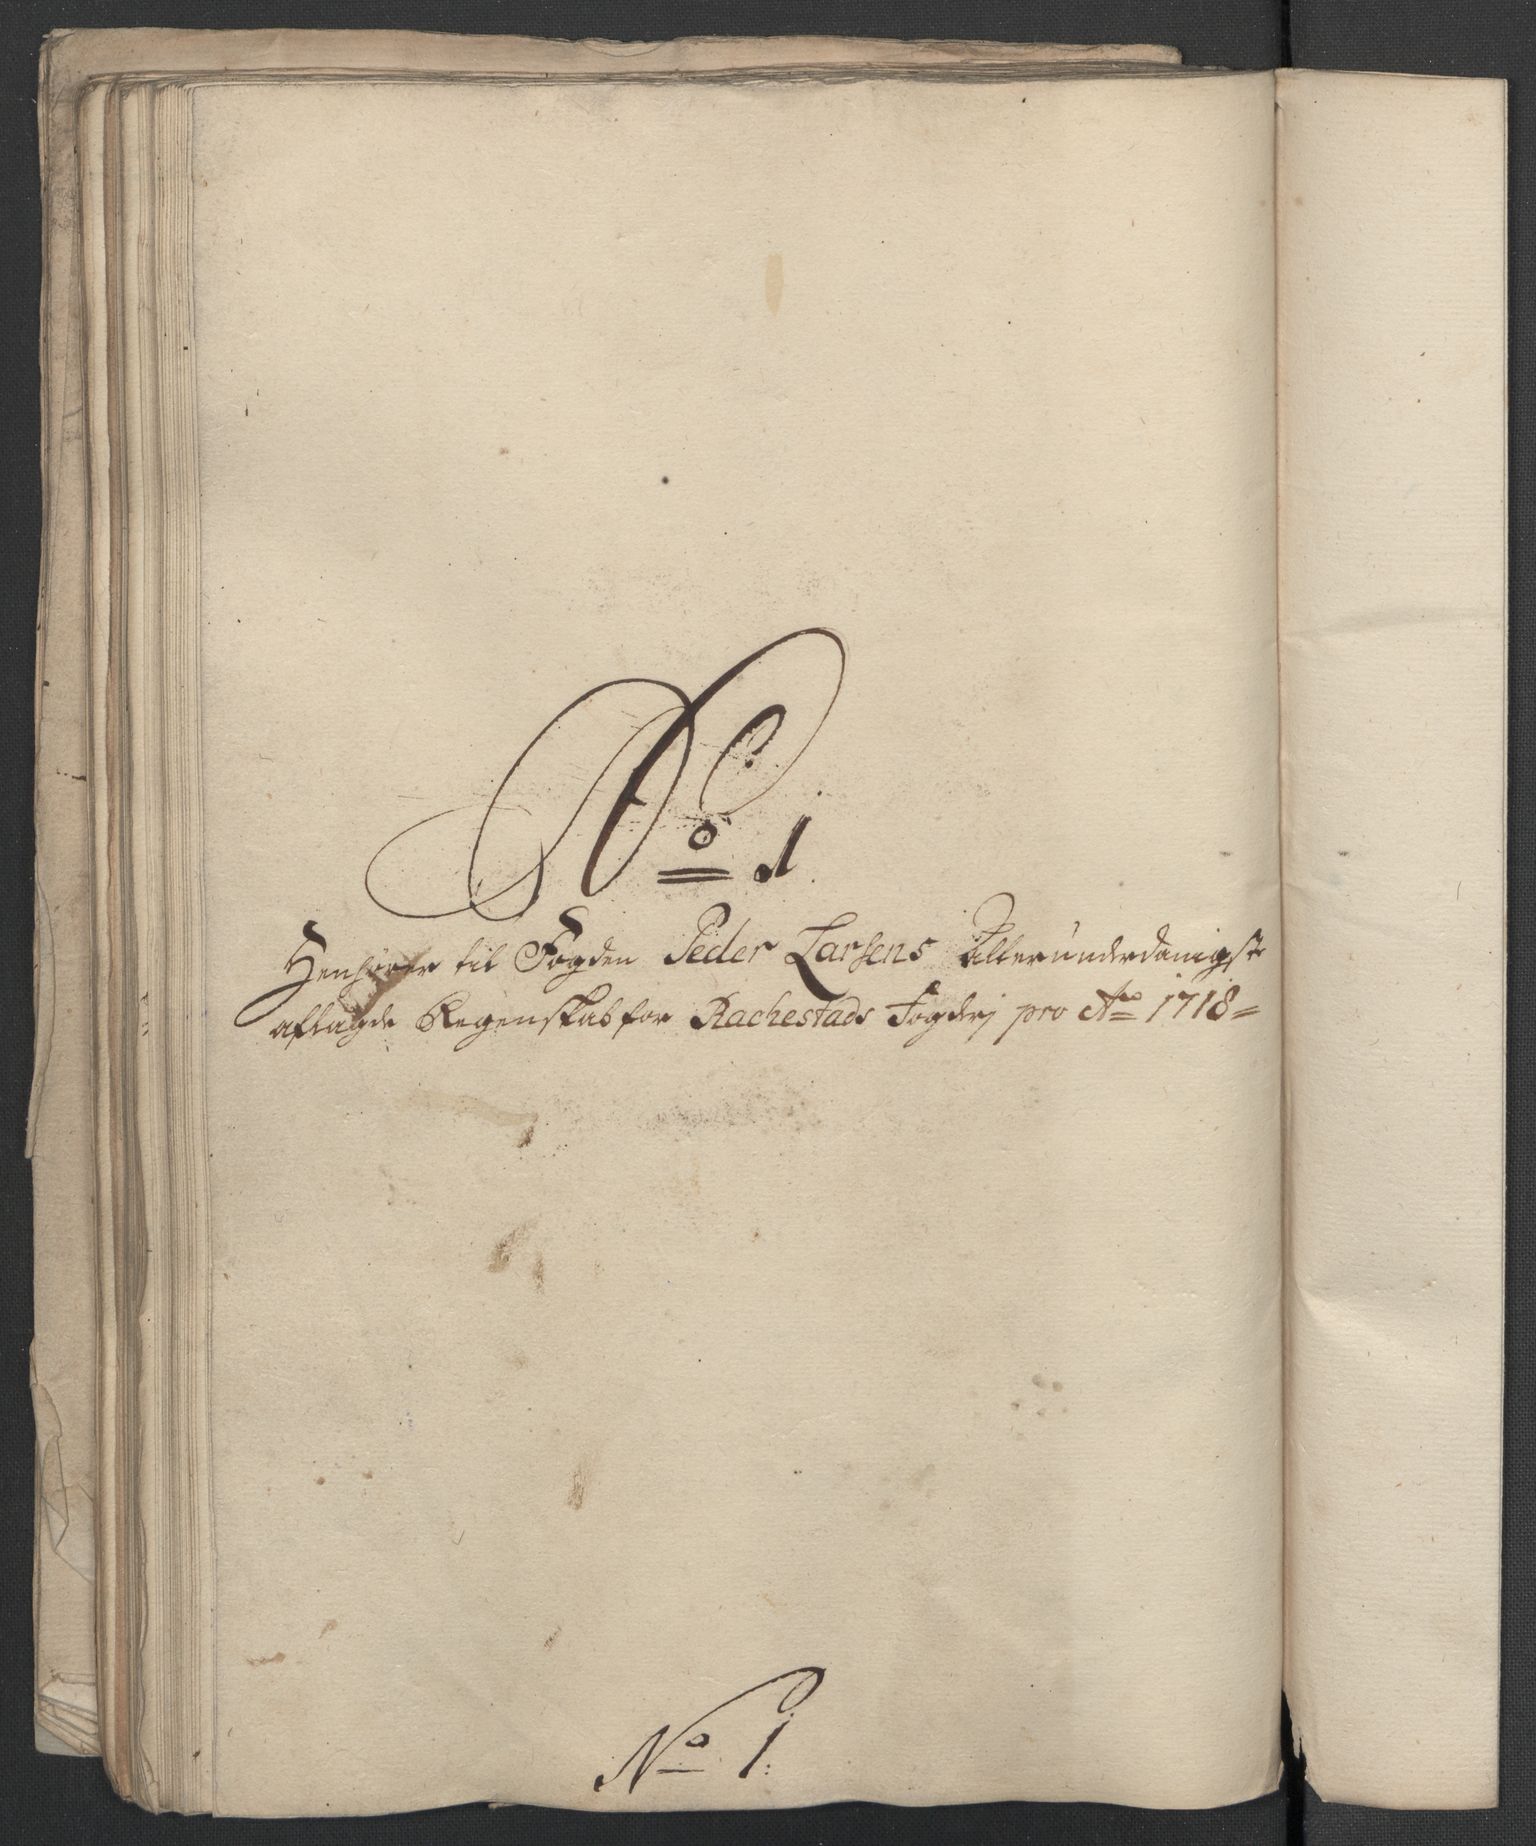 No 1
Henhører til Fogden Peder Larsens Allerunderdanigste
aflagde Regenskab for Rachestads Fogderj pro Ao 1718=
No 1.